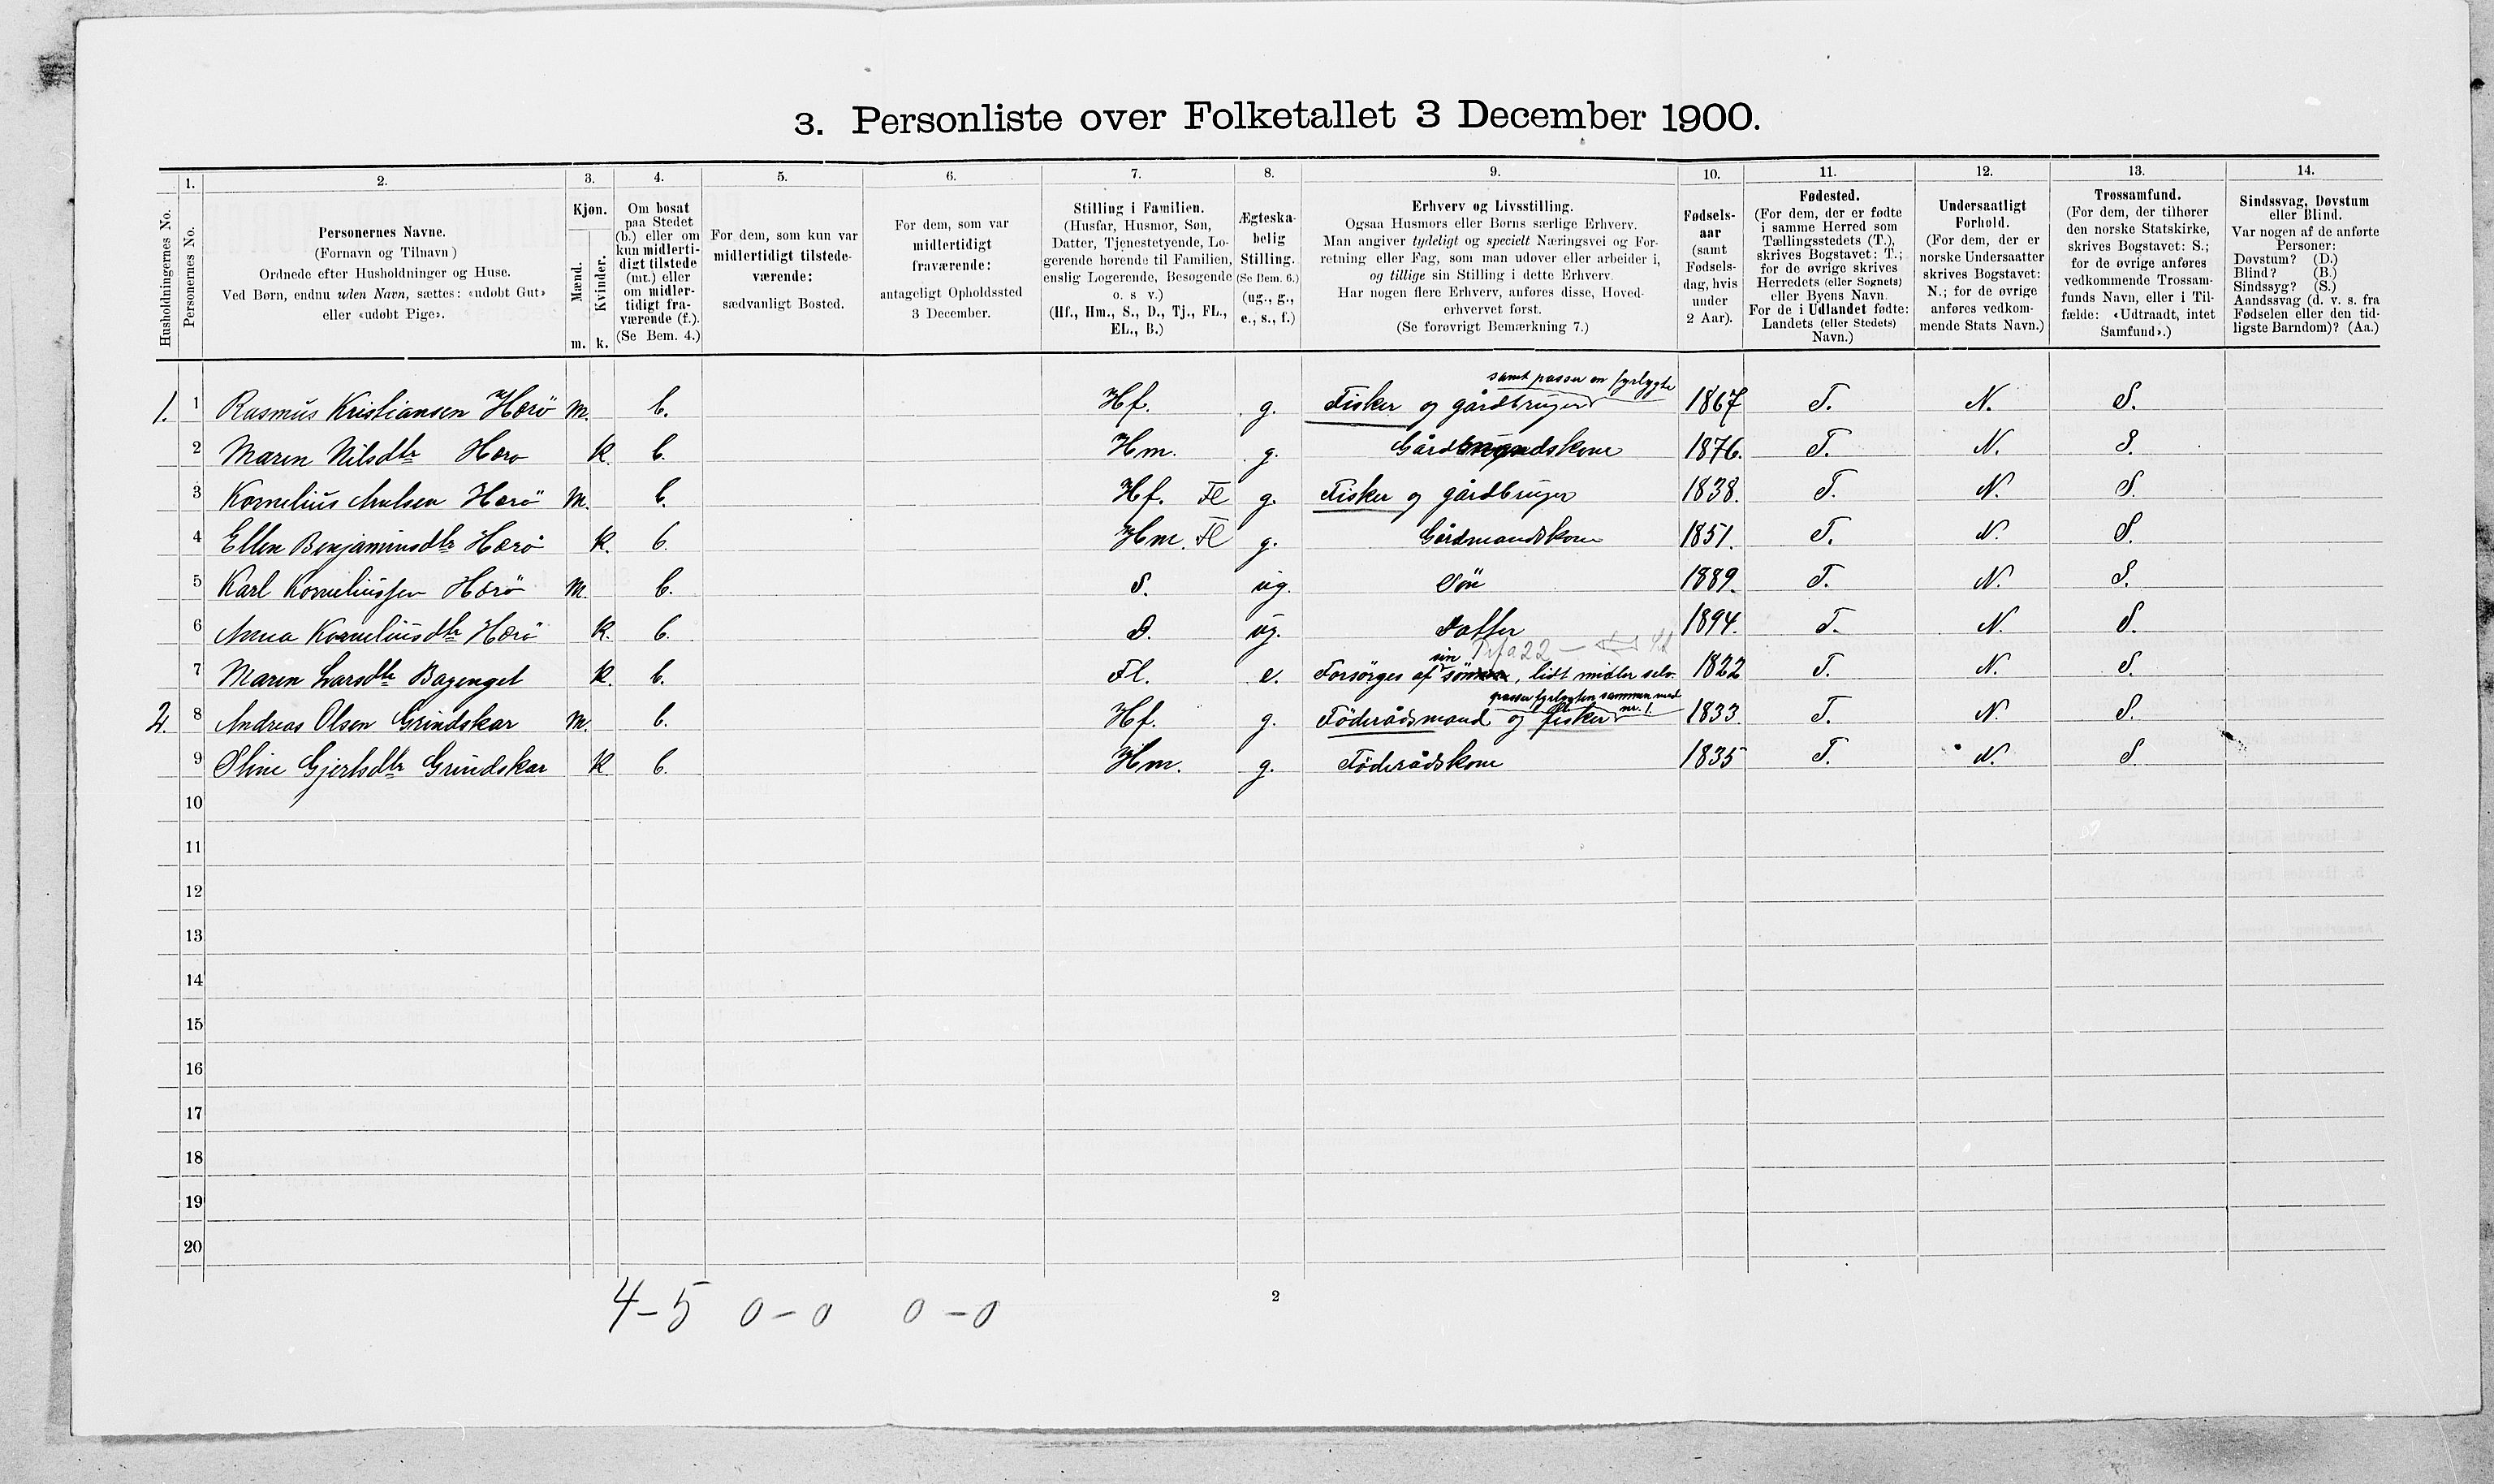 3. Personliste over Folketallet 3 December 1900.
Husholdningernes No.
1.
Personernes No.
2.
Personernes Navne.
(Fornavn og Tilnavn)
Ordnede efter Husholdninger og Huse.
Ved Børn, endnu uden Navn, sættes: «udøbt Gut»
eller «udøbt Pige».
3.
Kjøn.
Mænd.
Kvinder.
m. k.
4.
Om bosat
paa Stedet
(b.) eller om
kun midlerti-
digt tilstede
(mt.) eller
om midler-
tidigt fra-
værende (f.).
(Se Bem. 4.)
5.
For dem, som kun var
midlertidigt tilstede-
værende:
sædvanligt Bosted.
6.
For dem, som var
midlertidigt
fraværende:
antageligt Opholdssted
3 December.
7.
Stilling i Familien.
(Husfar, Husmor, Søn,
Datter, Tjenestetyende, Lo-
gerende hørende til Familien,
enslig Logerende, Besøgende
o. s v.)
(Hf., Hm., S., D., Tj., FL.,
EL., B.)
8.
Ægteska-
belig
Stilling.
(Se Bem. 6.)
(ug., g.,
e., s., f.)
9.
Erhverv og Livsstilling.
Ogsaa Husmors eller Børns særlige Erhverv.
Man angiver tydeligt og specielt Næringsvei og For-
retning eller Fag, som man udøver eller arbeider i,
og tillige sin Stilling i dette Erhverv.
Har nogen flere Erhverv, anføres disse, Hoved-
erhvervet først.
(Se forøvrigt Bemærkning 7.)
10.
Fødsels-
aar
(samt
Fødsels-
dag, hvis
under
2 Aar).
11.
Fødested.
(For dem, der er fødte
i samme Herred som
Tællingsstedets (T.),
skrives Bogstavet: T.;
for de øvrige skrives
Herredets (eller Sognets)
eller Byens Navn.
For de i Udlandet fødte:
Landets (eller Stedets)
Navn.)
12.
Undersaatligt
Forhold.
(For dem, der er
norske Undersaatter
skrives Bogstavet:
N.; for de øvrige
anføres vedkom-
mende Stats Navn.)
13.
Trossamfund.
(For dem, der tilhører
den norske Statskirke,
skrives Bogstavet: S.;
for de øvrige anføres
vedkommende Trossam-
funds Navn, eller i Til-
fælde: «Udtraadt, intet
Samfund».)
14.
Sindssvag, Døvstum
eller Blind.
Var nogen af de anførte
Personer:
Døvstum? (D.)
Blind? (B.)
Sindssyg? (S.)
Aandssvag (d. v. s. fra
Fødselen eller den tid-
ligste Barndom)? (Aa.)
samt passer en fyrlygte
1. 1 Rasmus Kristiansen Hærö m. b. Hf. g. Fisker og gårdbruger 1867 T. N. S.
2 Maren Nilsdtr Hærö k. b. Hm. g. 1876. T. N. S.
3 Kornelius Hærö m. b. Hf. Fl g. Fisker og gårdbruger 1838. T. N. S.
4 Ellen Benjaminsdtr Hærö k. b. Hm. Fl g. Gårdmandskone 1851. T. N. S.
5 Karl Korneliussen Hærö m. b. S. ug. Sön 1889. T. N. S.
6 Anna Korneliusdtr Hærö k. b. D. ug. Datter 1894. T. N. S.
sin
7 Maren Larsdtr k. b. Fl. e. Forsörges af , lidt midler selv. 1822 T. N. S.
passer fyrlygten sammen med
nr. 1.
2. 8 Andreas Olsen Grindskar m. b. Hf. g. Föderådsmand og fisker 1833. T. N. S.
9 Oline Gjertsdtr Grindskar k. b. Hm. g. Föderådskone 1835 T. N. S.
10
11
12
13
14
15
16
17
18
19
20
4-5 0-0 0-0
2